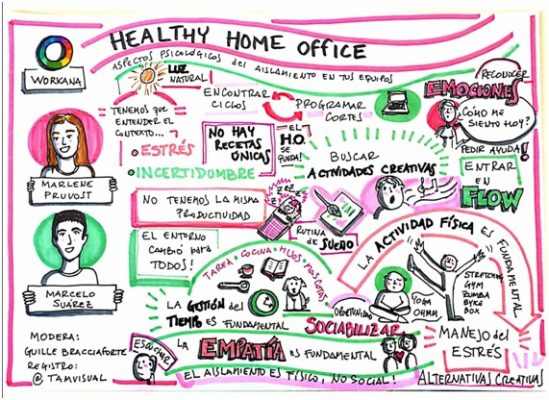 HEALTHY HOME OFFICE
ASPECTOS PSICOLÓGICOS DEL AISLAMIENTO EN TUS EQUIPOS
WORKANA
LUZ
NATURAL
ENCONTRAR
CICLOS
PROGRAMAR
CORTES
RECONOCER
EMOCIONES
¿CÓMO ME
SIENTO HOY?
PEDIR AYUDA!
ENTRAR
EN
FLOW
"TENEMOS QUE
ENTENDER EL
CONTEXTO...
• ESTRÉS
• INCERTIDUMBRE
NO HAY
RECETAS
ÚNICAS
EL
H.O.
SE
QUEDA!
BUSCAR
ACTIVIDADES CREATIVAS
MARLENE
PRUVOST
NO TENEMOS LA MISMA
PRODUCTIVIDAD
ZZZ
RUTINA
DE SUEÑO
EL ENTORNO
CAMBIÓ PARA
TODOS!
TAREA • COCINA • HIJOS • MASCOTAS
LA GESTIÓN del
TIEMPO ES FUNDAMENTAL
MARCELO
SUÁREZ
LA ACTIVIDAD FÍSICA ES FUNDAMENTAL
YOGA
OHMM
STRETCHING
GYM
ZUMBA
BYKE
BOX
OPORTUNIDAD
SOCIABILIZAR
MANEJO del
ESTRÉS
ALTERNATIVAS CREATIVAS
MODERA:
GUILLE BRACCIAFORTE
REGISTRO:
@TAMVISUAL
ESCUCHAR
LA EMPATÍA ES FUNDAMENTAL
EL AISLAMIENTO ES FÍSICO, NO SOCIAL!